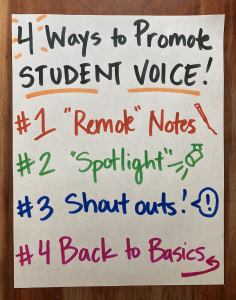 4 Ways to Promote
STUDENT VOICE!
#1 "Remote" Notes
#2 "Spotlight"
#3 Shout outs!
#4 Back to Basics